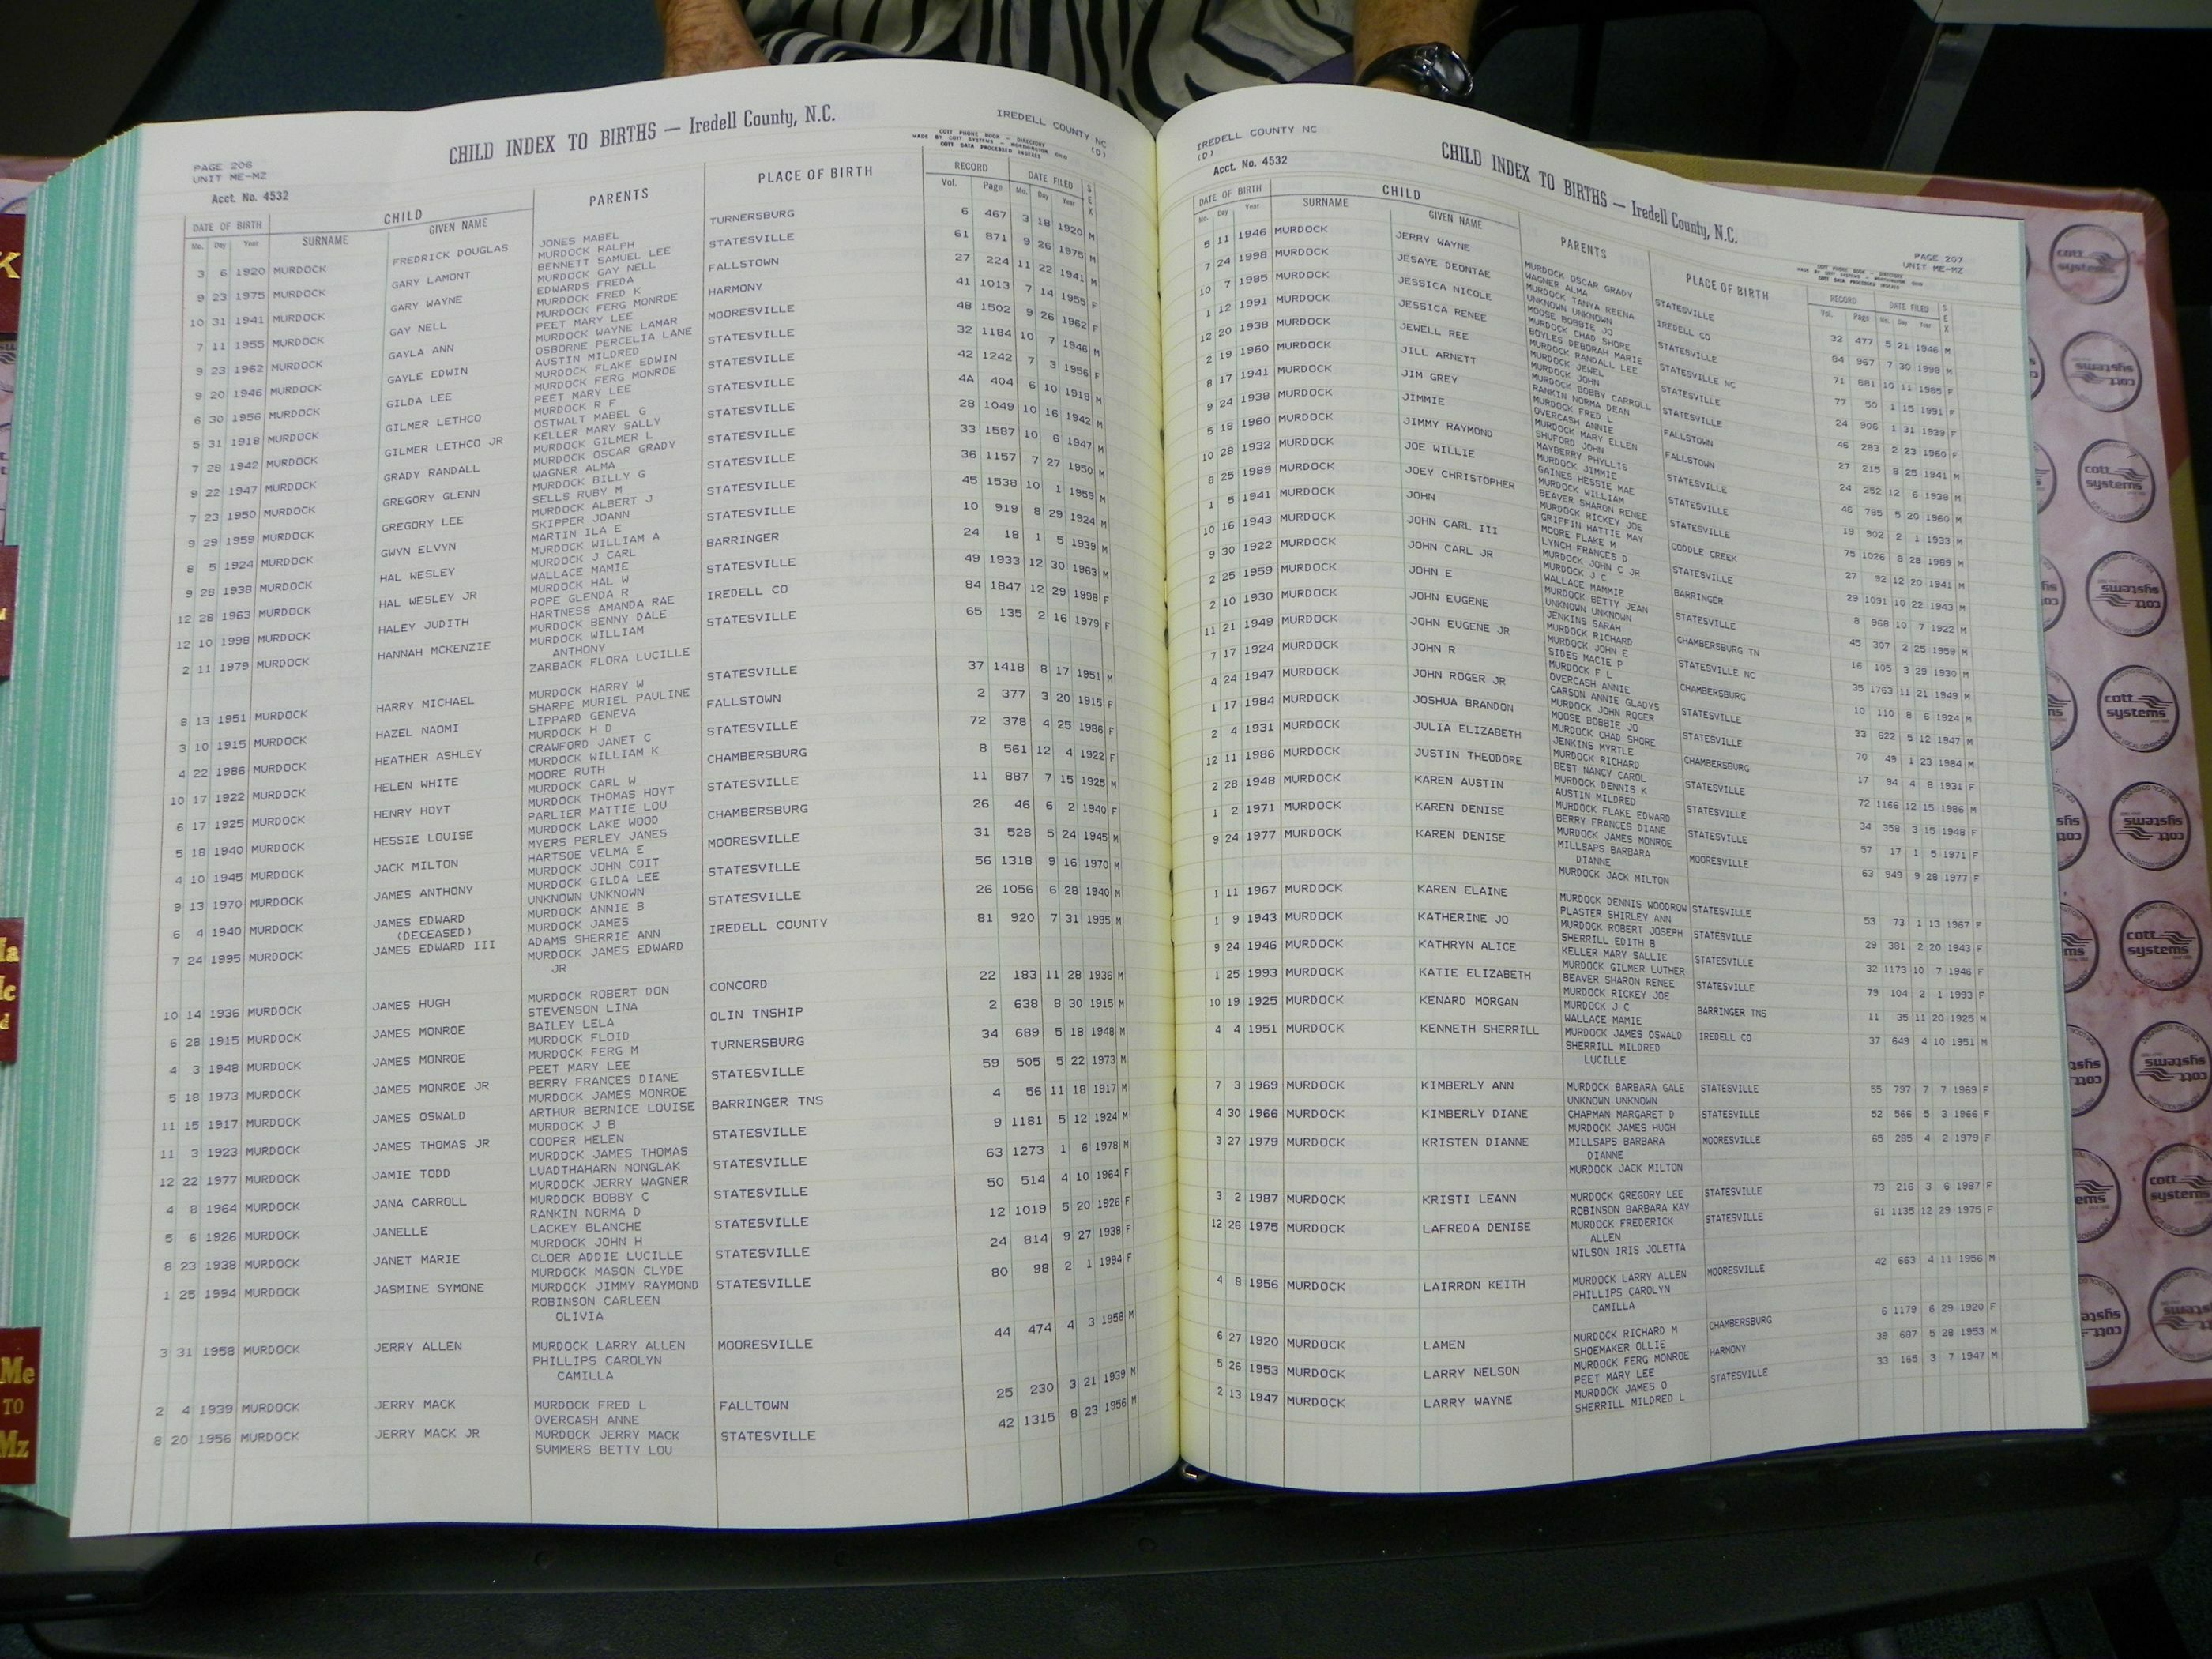 IREDELL COUNTY NC
(D)
CHILD INDEX TO BIRTHS — Iredell County, N.C.
COTT PHONE BOOK - DIRECTORY
MADE BY COTT SYSTEMS - WORTHINGTON OHIO
COTT DATA PROCESSED INDEXES
PAGE 206
UNIT ME-MZ
Acct. No. 4532
DATE OF BIRTH CHILD PARENTS PLACE OF BIRTH RECORD DATE FILED SEX
Mo. Day Year SURNAME GIVEN NAME Vol. Page Mo. Day Year
3 6 1920 MURDOCK FREDRICK DOUGLAS JONES MABEL TURNERSBURG 6 467 3 18 1920 M
MURDOCK RALPH
9 23 1975 MURDOCK GARY LAMONT BENNETT SAMUEL LEE STATESVILLE 61 871 9 26 1975 M
MURDOCK GAY NELL
10 31 1941 MURDOCK GARY WAYNE EDWARDS FREDA FALLSTOWN 27 224 11 22 1941 M
MURDOCK FRED K
7 11 1955 MURDOCK GAY NELL MURDOCK FERG MONROE HARMONY 41 1013 7 14 1955 F
PEET MARY LEE
9 23 1962 MURDOCK GAYLA ANN MURDOCK WAYNE LAMAR MOORESVILLE 48 1502 9 26 1962 F
OSBORNE PERCELIA LANE
9 20 1946 MURDOCK GAYLE EDWIN AUSTIN MILDRED STATESVILLE 32 1184 10 7 1946 M
MURDOCK FLAKE EDWIN
6 30 1956 MURDOCK GILDA LEE MURDOCK FERG MONROE STATESVILLE 42 1242 7 3 1956 F
PEET MARY LEE
5 31 1918 MURDOCK GILMER LETHCO MURDOCK R F STATESVILLE 4A 404 6 10 1918 M
OSTWALT MABEL G
7 28 1942 MURDOCK GILMER LETHCO JR KELLER MARY SALLY STATESVILLE 28 1049 10 16 1942 M
MURDOCK GILMER L
9 22 1947 MURDOCK GRADY RANDALL MURDOCK OSCAR GRADY STATESVILLE 33 1587 10 6 1947 M
WAGNER ALMA
7 23 1950 MURDOCK GREGORY GLENN MURDOCK BILLY G STATESVILLE 36 1157 7 27 1950 M
SELLS RUBY M
9 29 1959 MURDOCK GREGORY LEE MURDOCK ALBERT J STATESVILLE 45 1538 10 1 1959 M
SKIPPER JOANN
8 5 1924 MURDOCK GWYN ELVYN MARTIN ILA E STATESVILLE 10 919 8 29 1924 M
MURDOCK WILLIAM A
9 28 1938 MURDOCK HAL WESLEY MURDOCK J CARL BARRINGER 24 18 1 5 1939 M
WALLACE MAMIE
12 28 1963 MURDOCK HAL WESLEY JR MURDOCK HAL W STATESVILLE 49 1933 12 30 1963 M
POPE GLENDA R
12 10 1998 MURDOCK HALEY JUDITH HARTNESS AMANDA RAE IREDELL CO 84 1847 12 29 1998 F
MURDOCK BENNY DALE
2 11 1979 MURDOCK HANNAH MCKENZIE MURDOCK WILLIAM STATESVILLE 65 135 2 16 1979 F
ANTHONY
ZARBACK FLORA LUCILLE
8 13 1951 MURDOCK HARRY MICHAEL MURDOCK HARRY W STATESVILLE 37 1418 8 17 1951 M
SHARPE MURIEL PAULINE
3 10 1915 MURDOCK HAZEL NAOMI LIPPARD GENEVA FALLSTOWN 2 377 3 20 1915 F
MURDOCK H D
4 22 1986 MURDOCK HEATHER ASHLEY CRAWFORD JANET C STATESVILLE 72 378 4 25 1986 F
MURDOCK WILLIAM K
10 17 1922 MURDOCK HELEN WHITE MOORE RUTH CHAMBERSBURG 8 561 12 4 1922 F
MURDOCK CARL W
6 17 1925 MURDOCK HENRY HOYT MURDOCK THOMAS HOYT STATESVILLE 11 887 7 15 1925 M
PARLIER MATTIE LOU
5 18 1940 MURDOCK HESSIE LOUISE MURDOCK LAKE WOOD CHAMBERSBURG 26 46 6 2 1940 F
MYERS PERLEY JANES
4 10 1945 MURDOCK JACK MILTON HARTSOE VELMA E MOORESVILLE 31 528 5 24 1945 M
MURDOCK JOHN COIT
9 13 1970 MURDOCK JAMES ANTHONY MURDOCK GILDA LEE STATESVILLE 56 1318 9 16 1970 M
UNKNOWN UNKNOWN
6 4 1940 MURDOCK JAMES EDWARD MURDOCK ANNIE B STATESVILLE 26 1056 6 28 1940 M
(DECEASED) MURDOCK JAMES
7 24 1995 MURDOCK JAMES EDWARD III ADAMS SHERRIE ANN IREDELL COUNTY 81 920 7 31 1995 M
MURDOCK JAMES EDWARD
JR
10 14 1936 MURDOCK JAMES HUGH MURDOCK ROBERT DON CONCORD 22 183 11 28 1936 M
STEVENSON LINA
6 28 1915 MURDOCK JAMES MONROE BAILEY LELA OLIN TNSHIP 2 638 8 30 1915 M
MURDOCK FLOID
4 3 1948 MURDOCK JAMES MONROE MURDOCK FERG M TURNERSBURG 34 689 5 18 1948 M
PEET MARY LEE
5 18 1973 MURDOCK JAMES MONROE JR BERRY FRANCES DIANE STATESVILLE 59 505 5 22 1973 M
MURDOCK JAMES MONROE
11 15 1917 MURDOCK JAMES OSWALD ARTHUR BERNICE LOUISE BARRINGER TNS 4 56 11 18 1917 M
MURDOCK J B
11 3 1923 MURDOCK JAMES THOMAS JR COOPER HELEN STATESVILLE 9 1181 5 12 1924 M
MURDOCK JAMES THOMAS
12 22 1977 MURDOCK JAMIE TODD LUADTHAHARN NONGLAK STATESVILLE 63 1273 1 6 1978 M
MURDOCK JERRY WAGNER
4 8 1964 MURDOCK JANA CARROLL MURDOCK BOBBY C STATESVILLE 50 514 4 10 1964 F
RANKIN NORMA D
5 6 1926 MURDOCK JANELLE LACKEY BLANCHE STATESVILLE 12 1019 5 20 1926 F
MURDOCK JOHN H
8 23 1938 MURDOCK JANET MARIE CLOER ADDIE LUCILLE STATESVILLE 24 814 9 27 1938 F
MURDOCK MASON CLYDE
1 25 1994 MURDOCK JASMINE SYMONE MURDOCK JIMMY RAYMOND STATESVILLE 80 98 2 1 1994 F
ROBINSON CARLEEN
OLIVIA
3 31 1958 MURDOCK JERRY ALLEN MURDOCK LARRY ALLEN MOORESVILLE 44 474 4 3 1958 M
PHILLIPS CAROLYN
CAMILLA
2 4 1939 MURDOCK JERRY MACK MURDOCK FRED L FALLTOWN 25 230 3 21 1939 M
OVERCASH ANNE
8 20 1956 MURDOCK JERRY MACK JR MURDOCK JERRY MACK STATESVILLE 42 1315 8 23 1956 M
SUMMERS BETTY LOU
IREDELL COUNTY NC
(D)
Acct. No. 4532
CHILD INDEX TO BIRTHS — Iredell County, N.C.
COTT PHONE BOOK - DIRECTORY
MADE BY COTT SYSTEMS - WORTHINGTON OHIO
COTT DATA PROCESSED INDEXES
PAGE 207
UNIT ME-MZ
DATE OF BIRTH CHILD PARENTS PLACE OF BIRTH RECORD DATE FILED SEX
Mo. Day Year SURNAME GIVEN NAME Vol. Page Mo. Day Year
5 11 1946 MURDOCK JERRY WAYNE MURDOCK OSCAR GRADY STATESVILLE 32 477 5 21 1946 M
WAGNER ALMA
7 24 1998 MURDOCK JESAYE DEONTAE MURDOCK TANYA REENA IREDELL CO 84 967 7 30 1998 M
UNKNOWN UNKNOWN
10 7 1985 MURDOCK JESSICA NICOLE MOOSE BOBBIE JO STATESVILLE 71 881 10 11 1985 F
MURDOCK CHAD SHORE
1 12 1991 MURDOCK JESSICA RENEE BOYLES DEBORAH MARIE STATESVILLE NC 77 50 1 15 1991 F
MURDOCK RANDALL LEE
12 20 1938 MURDOCK JEWELL REE MURDOCK JEWEL STATESVILLE 24 906 1 31 1939 F
MURDOCK JOHN
2 19 1960 MURDOCK JILL ARNETT MURDOCK BOBBY CARROLL FALLSTOWN 46 283 2 23 1960 F
RANKIN NORMA DEAN
8 17 1941 MURDOCK JIM GREY MURDOCK FRED L FALLSTOWN 27 215 8 25 1941 M
OVERCASH ANNIE
9 24 1938 MURDOCK JIMMIE MURDOCK MARY ELLEN STATESVILLE 24 252 12 6 1938 M
SHUFORD JOHN
5 18 1960 MURDOCK JIMMY RAYMOND MAYBERRY PHYLLIS STATESVILLE 46 785 5 20 1960 M
MURDOCK JIMMIE
10 28 1932 MURDOCK JOE WILLIE GAINES HESSIE MAE CODDLE CREEK 19 902 2 1 1933 M
MURDOCK WILLIAM
8 25 1989 MURDOCK JOEY CHRISTOPHER BEAVER SHARON RENEE STATESVILLE 75 1026 8 28 1989 M
MURDOCK RICKEY JOE
1 5 1941 MURDOCK JOHN GRIFFIN HATTIE MAY BARRINGER 27 92 12 20 1941 M
MOORE FLAKE M
10 16 1943 MURDOCK JOHN CARL III LYNCH FRANCES D STATESVILLE 29 1091 10 22 1943 M
MURDOCK JOHN C JR
9 30 1922 MURDOCK JOHN CARL JR MURDOCK J C CHAMBERSBURG TN 8 968 10 7 1922 M
WALLACE MAMMIE
2 25 1959 MURDOCK JOHN E MURDOCK BETTY JEAN STATESVILLE NC 45 307 2 25 1959 M
UNKNOWN UNKNOWN
2 10 1930 MURDOCK JOHN EUGENE JENKINS SARAH CHAMBERSBURG 16 105 3 29 1930 M
MURDOCK RICHARD
11 21 1949 MURDOCK JOHN EUGENE JR MURDOCK JOHN E STATESVILLE 35 1763 11 21 1949 M
SIDES MACIE P
7 17 1924 MURDOCK JOHN R MURDOCK F L STATESVILLE 10 110 8 6 1924 M
OVERCASH ANNIE
4 24 1947 MURDOCK JOHN ROGER JR CARSON ANNIE GLADYS CHAMBERSBURG 33 622 5 12 1947 M
MURDOCK JOHN ROGER
1 17 1984 MURDOCK JOSHUA BRANDON MOOSE BOBBIE JO STATESVILLE 70 49 1 23 1984 M
MURDOCK CHAD SHORE
2 4 1931 MURDOCK JULIA ELIZABETH JENKINS MYRTLE STATESVILLE 17 94 4 8 1931 F
MURDOCK RICHARD
12 11 1986 MURDOCK JUSTIN THEODORE BEST NANCY CAROL MOORESVILLE 72 1166 12 15 1986 M
MURDOCK DENNIS K
2 28 1948 MURDOCK KAREN AUSTIN AUSTIN MILDRED 34 358 3 15 1948 F
MURDOCK FLAKE EDWARD
1 2 1971 MURDOCK KAREN DENISE BERRY FRANCES DIANE 57 17 1 5 1971 F
MURDOCK JAMES MONROE
9 24 1977 MURDOCK KAREN DENISE MILLSAPS BARBARA 63 949 9 28 1977 F
DIANNE
MURDOCK JACK MILTON
1 11 1967 MURDOCK KAREN ELAINE MURDOCK DENNIS WOODROW STATESVILLE 53 73 1 13 1967 F
PLASTER SHIRLEY ANN
1 9 1943 MURDOCK KATHERINE JO MURDOCK ROBERT JOSEPH STATESVILLE 29 381 2 20 1943 F
SHERRILL EDITH B
9 24 1946 MURDOCK KATHRYN ALICE KELLER MARY SALLIE STATESVILLE 32 1173 10 7 1946 F
MURDOCK GILMER LUTHER
1 25 1993 MURDOCK KATIE ELIZABETH BEAVER SHARON RENEE STATESVILLE 79 104 2 1 1993 F
MURDOCK RICKEY JOE
10 19 1925 MURDOCK KENARD MORGAN MURDOCK J C BARRINGER TNS 11 35 11 20 1925 M
WALLACE MAMIE
4 4 1951 MURDOCK KENNETH SHERRILL MURDOCK JAMES OSWALD IREDELL CO 37 649 4 10 1951 M
SHERRILL MILDRED
LUCILLE
7 3 1969 MURDOCK KIMBERLY ANN MURDOCK BARBARA GALE STATESVILLE 55 797 7 7 1969 F
UNKNOWN UNKNOWN
4 30 1966 MURDOCK KIMBERLY DIANE CHAPMAN MARGARET D STATESVILLE 52 566 5 3 1966 F
MURDOCK JAMES HUGH
3 27 1979 MURDOCK KRISTEN DIANNE MILLSAPS BARBARA MOORESVILLE 65 285 4 2 1979 F
DIANNE
MURDOCK JACK MILTON
3 2 1987 MURDOCK KRISTI LEANN MURDOCK GREGORY LEE STATESVILLE 73 216 3 6 1987 F
ROBINSON BARBARA KAY
12 26 1975 MURDOCK LAFREDA DENISE MURDOCK FREDERICK STATESVILLE 61 1135 12 29 1975 F
ALLEN
WILSON IRIS JOLETTA
4 8 1956 MURDOCK LAIRRON KEITH MURDOCK LARRY ALLEN MOORESVILLE 42 663 4 11 1956 M
PHILLIPS CAROLYN
CAMILLA
6 27 1920 MURDOCK LAMEN MURDOCK RICHARD M CHAMBERSBURG 6 1179 6 29 1920 F
SHOEMAKER OLLIE
5 26 1953 MURDOCK LARRY NELSON MURDOCK FERG MONROE HARMONY 39 687 5 28 1953 M
PEET MARY LEE
2 13 1947 MURDOCK LARRY WAYNE MURDOCK JAMES O STATESVILLE 33 165 3 7 1947 M
SHERRILL MILDRED L
Me
TO
Mz
cott
systems